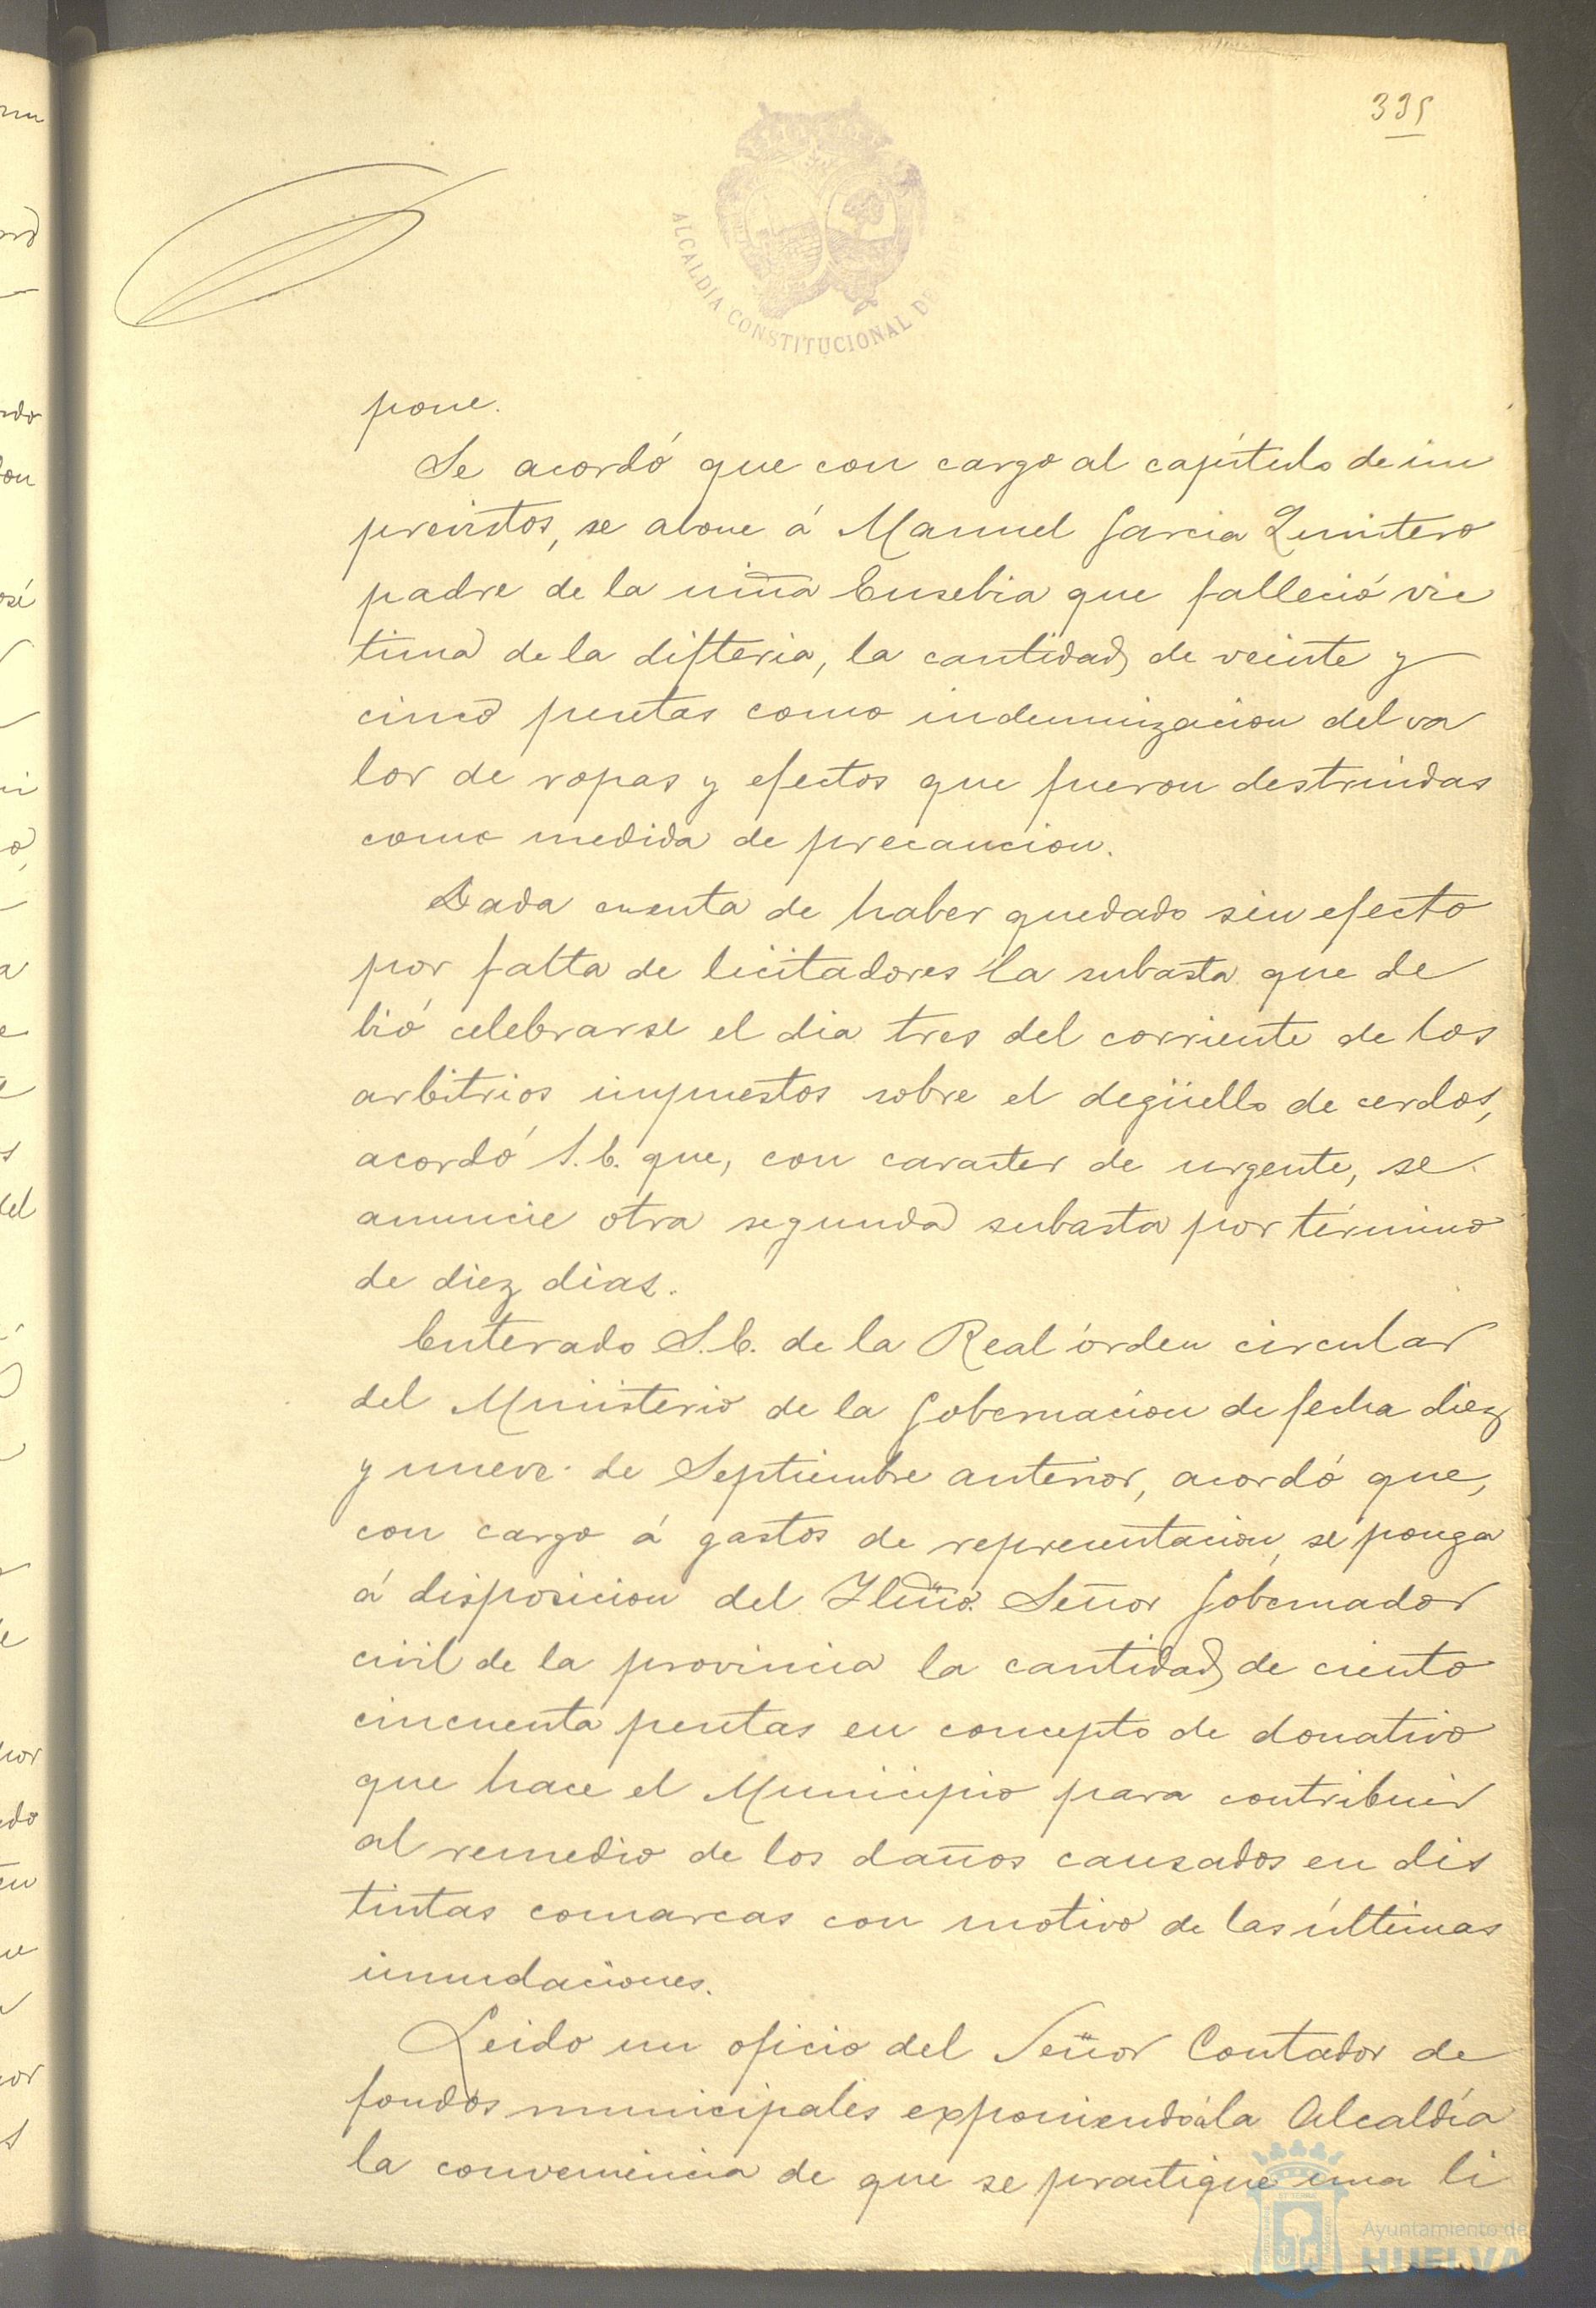 335
ALCALDIA CONSTITUCIONAL DE
pone.
Se acordó que con cargo al capítulo de im
previstos, se abone á Manuel Garcia Quintero
padre de la niña Eusebia que falleció vic
tima de la difteria, la cantidad de veinte y
cinco pesetas como indemnizacion del va
lor de ropas y efectos que fueron destruidas
como medida de precaucion.
Dada cuenta de haber quedado sin efecto
por falta de licitadores la subasta que de
bió celebrarse el dia tres del corriente de los
arbitrios impuestos sobre el degüello de cerdos,
acordó S.E. que, con caracter de urgente, se
anuncie otra segunda subasta por término
de diez dias.
Enterado S.E. de la Real órden circular
del Ministerio de la Gobernacion de fecha diez
y nueve de Septiembre anterior, acordó que,
con cargo á gastos de representacion, se ponga
á disposicion del Iltmo. Señor Gobernador
civil de la provincia la cantidad de ciento
cincuenta pesetas en concepto de donativo
que hace el Municipio para contribuir
al remedio de los daños causados en dis
tintas comarcas con motivo de las últimas
inundaciones.
Leido un oficio del Señor Contador de
fondos municipales exponiendo á la Alcaldía
la conveniencia de que se practique una li
Ayuntamiento de
HUELVA